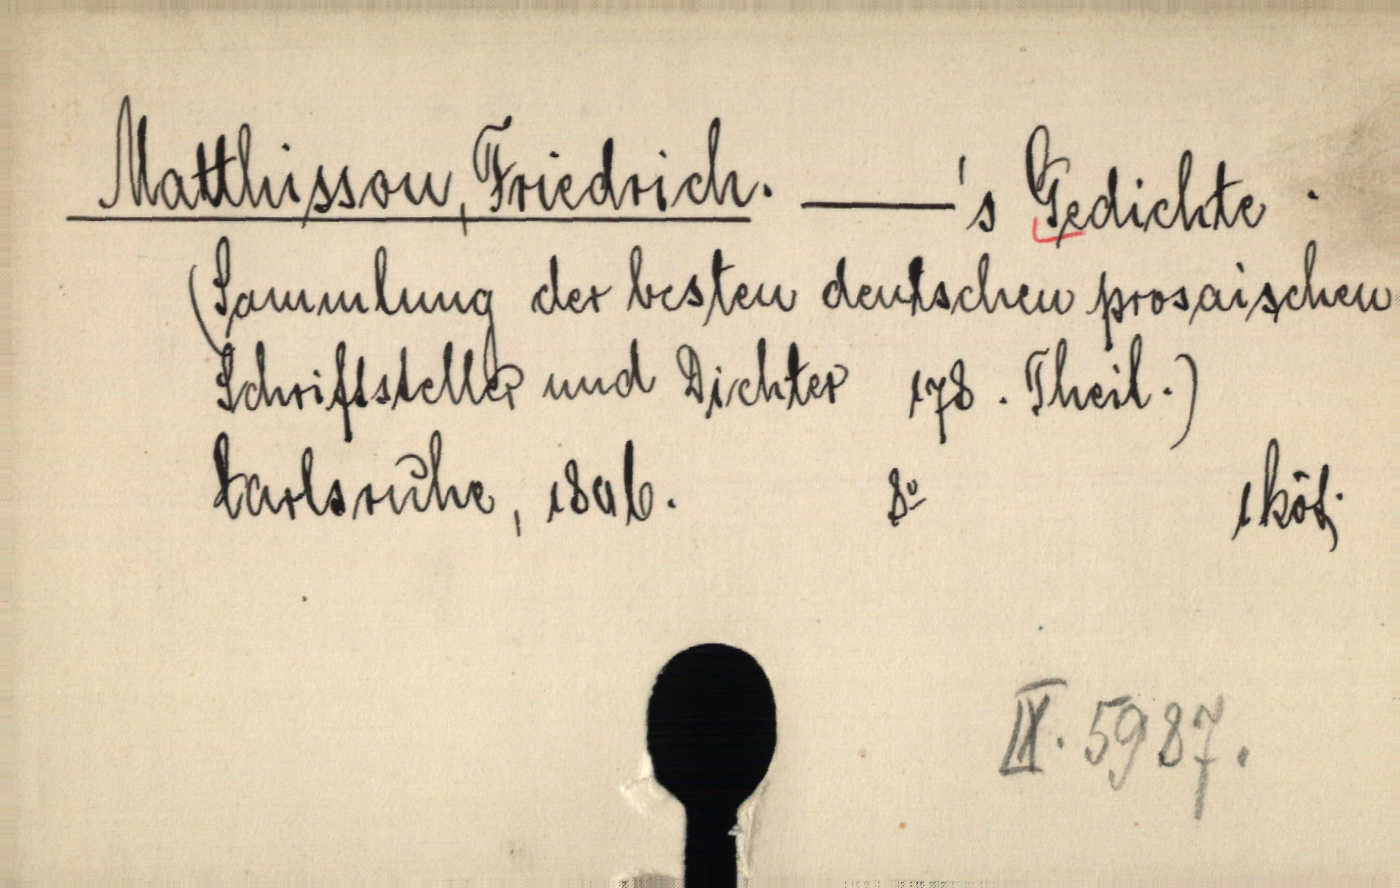 Matthisson, Friedrich. ——'s Gedichte.
(Sammlung der besten deutschen prosaischen
Schriftsteller und Dichter 178. Theil.)
Carlsruhe, 18 8º 1 köt.
IX. 5987.